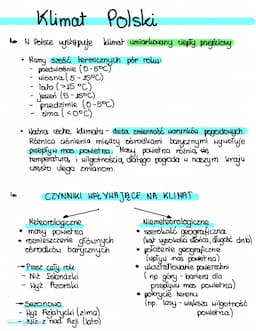 Klimat Polski
↳ W Polsce występuje klimat umiarkowany ciepły przejściowy
• Mamy sześć termicznych pór roku:
- przedwiośnie (0-5°C)
- wiosna (5-15°C)
- lato (>15°C)
- jesień (5-15°C)
- przedzimie (0-5°C)
- zima (<0°C)
• Ważna cecha klimatu - duża zmienność warunków pogodowych
Różnica ciśnienia między ośrodkami barycznymi wywołuje
przepływ mas powietrza. Masy powietrza różnią się
temperaturą i wilgotnością, dlatego pogoda w naszym kraju
często ulega zmianom.
↳ CZYNNIKI WPŁYWAJĄCE NA KLIMAT
Meteorologiczne
• masy powietrza
• rozmieszczenie głównych
ośrodków barycznych
→ Przez cały rok:
- Niż Islandzki
- Wyż Azorski
→ Sezonowo
- Wyż Azjatycki (zima)
- Niż z nad Azji (lato)
Niemeteorologiczne
• szerokość geograficzna
(kąt wysokości słońca, długość dnia)
• położenie geograficzne
(wpływ mas powietrza)
• ukształtowanie powierzchni
(np. góry - bariera dla
przepływu mas powietrza)
• pokrycie terenu
(np. lasy - większa wilgotność
powietrza)